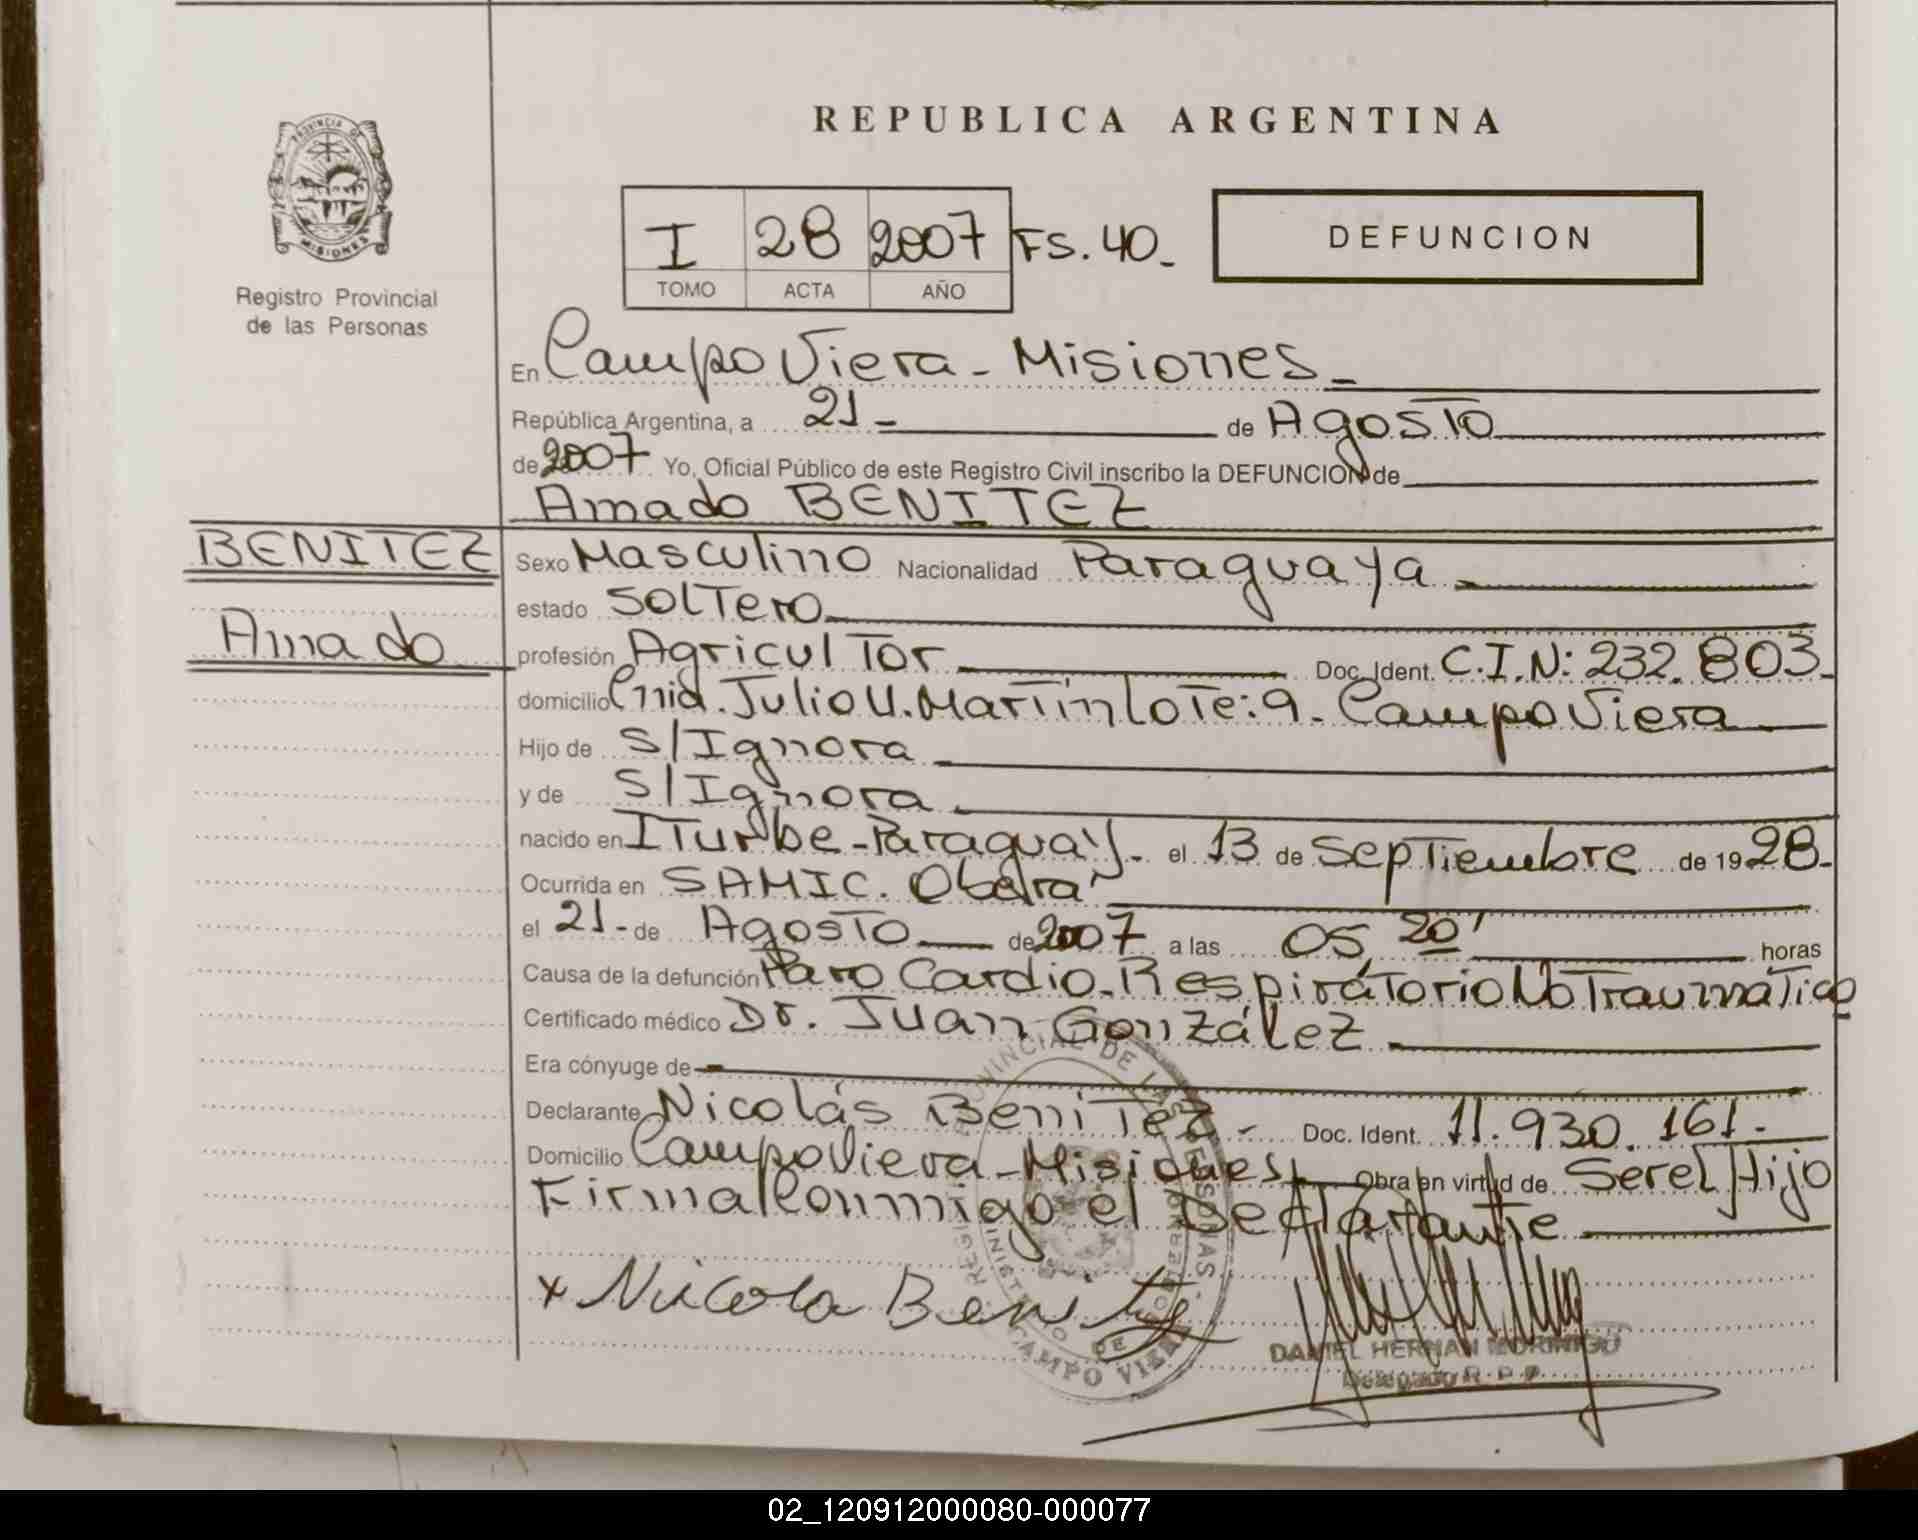 REPUBLICA ARGENTINA
PROVINCIA DE
MISIONES
Registro Provincial
de las Personas
I 28 2007 FS. 40_
TOMO ACTA AÑO
DEFUNCION
En Campo Viera - Misiones_
República Argentina, a 21 - de Agosto
de 2007 Yo, Oficial Público de este Registro Civil inscribo la DEFUNCION de
Amado BENITEZ
BENITEZ
Amado
Sexo Masculino Nacionalidad Paraguaya
estado Soltero
profesión Agricultor Doc. Ident. C.I.N: 232.803_
domicilio Cnia. Julio U. Martin Lote: 9 - Campo Viera
Hijo de S/Ignora
y de S/Ignora
nacido en Iturbe - Paraguay - el 13 de Septiembre de 1928 -
Ocurrida en SAMIC. Oberá
el 21 - de Agosto de 2007 a las 05, 20' horas
Causa de la defunción Paro Cardio - Respirátorio No Traumático
Certificado médico Dr. Juan González
Era cónyuge de
Declarante Nicolás Benitez - Doc. Ident. 11.930.161 -
Domicilio Campo Viera - Misiones Obra en virtud de Ser el Hijo
Firma Conmigo el Declarante
x Nicola Benitez
CAMPO VIERA
DANIEL HERNAN MORINIGO
Delegado R.P.P.
02_120912000080-000077